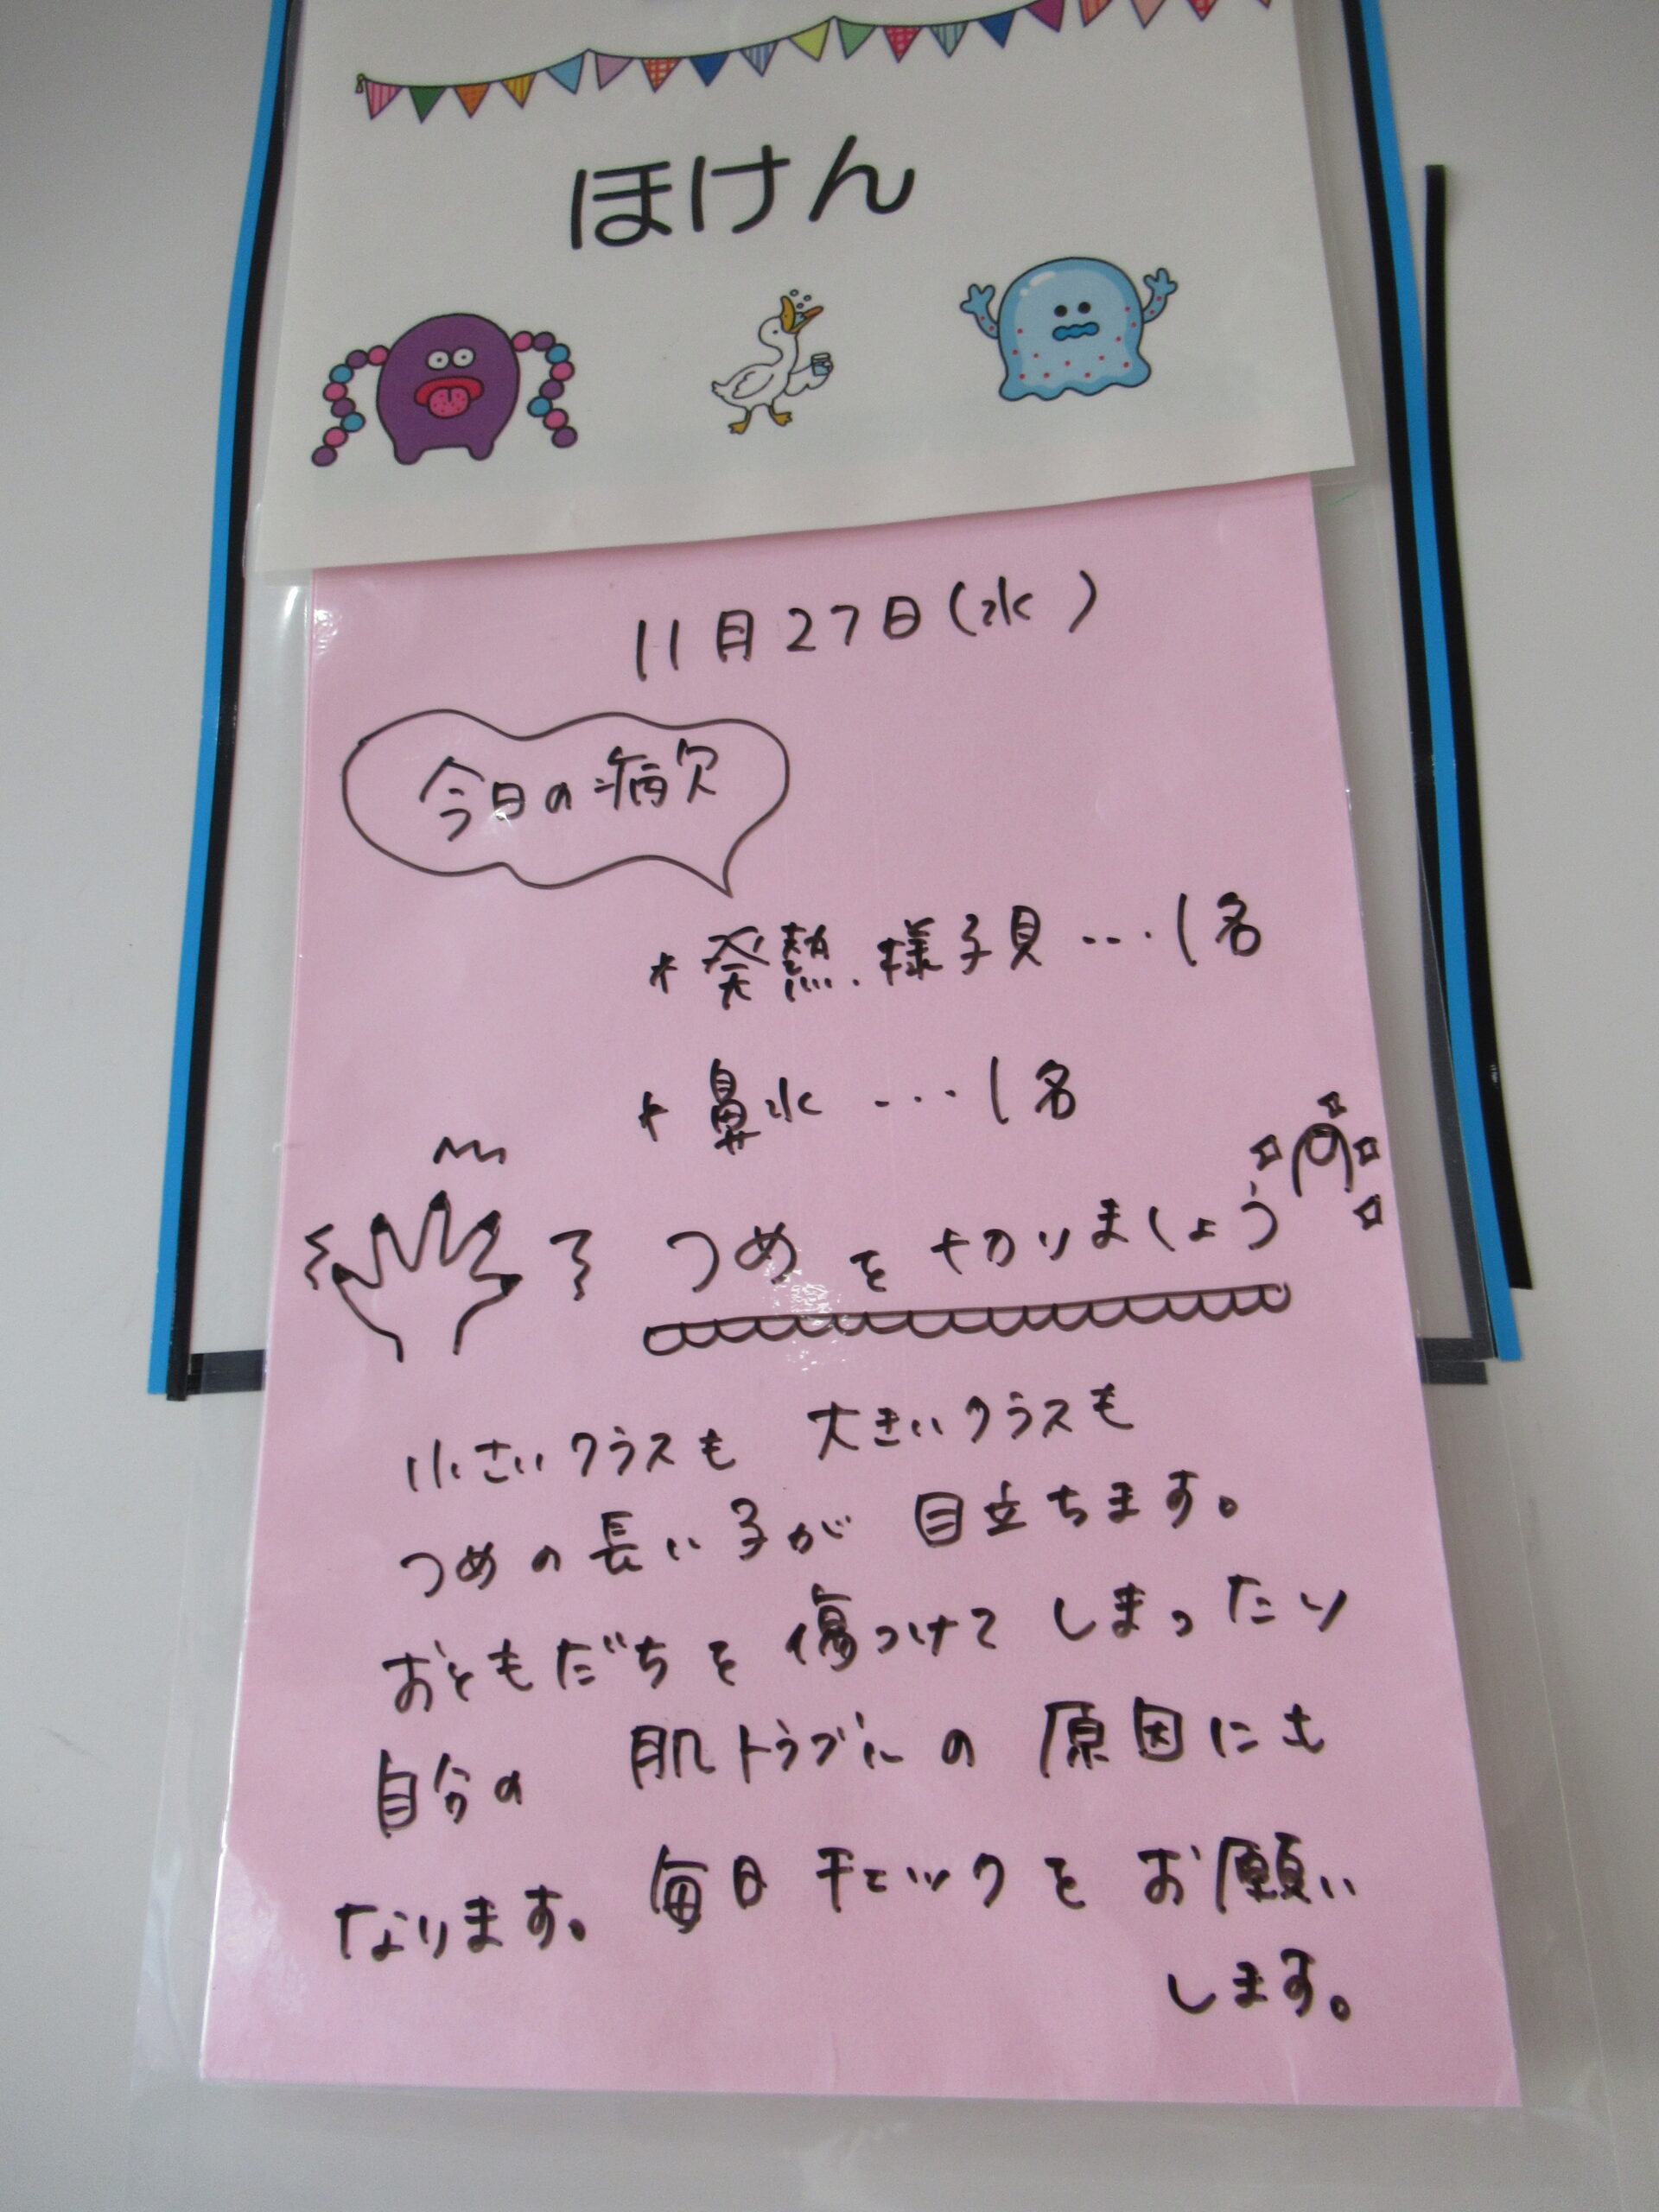 ほけん
11月27日(水)
今日の病欠
* 発熱.様子見…1名
* 鼻水…1名
つめを切りましょう
小さいクラスも 大きいクラスも
つめの長い子が 目立ちます。
おともだちを 傷つけて しまったり
自分の 肌トラブルの 原因にも
なります。 毎日 チェックを お願い
します。